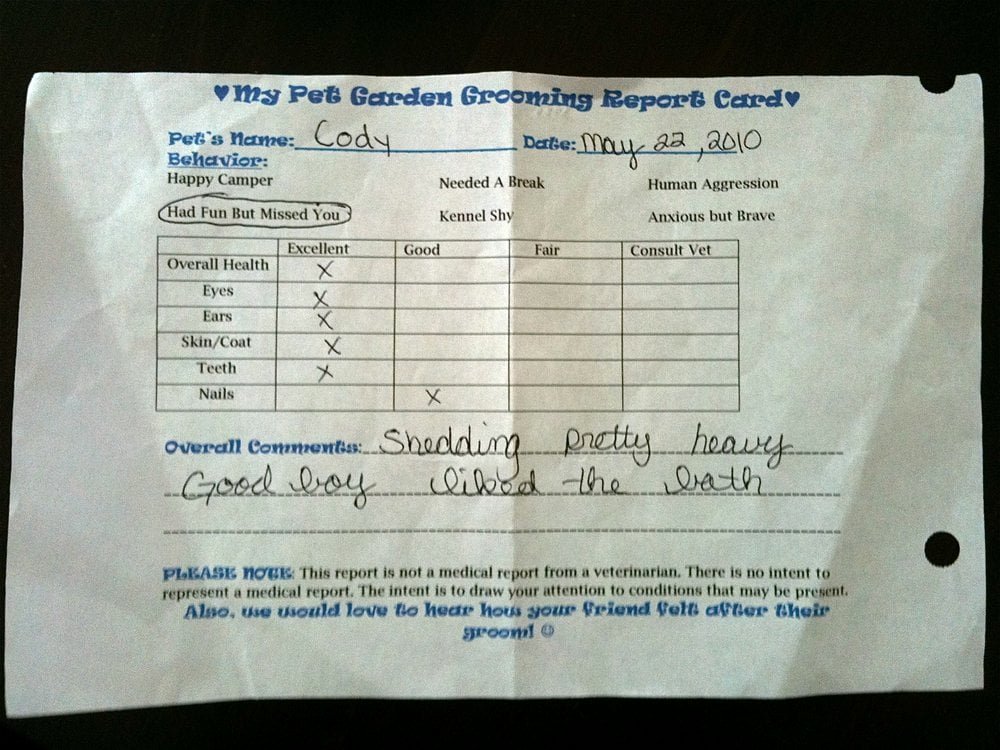 ♥My Pet Garden Grooming Report Card♥
Pet's Name: Cody Date: May 22, 2010
Behavior:
Happy Camper Needed A Break Human Aggression
Had Fun But Missed You Kennel Shy Anxious but Brave
Excellent Good Fair Consult Vet
Overall Health X
Eyes X
Ears X
Skin/Coat X
Teeth X
Nails X
Overall Comments: Shedding pretty heavy
Good boy liked the bath
PLEASE NOTE: This report is not a medical report from a veterinarian. There is no intent to
represent a medical report. The intent is to draw your attention to conditions that may be present.
Also, we would love to hear how your friend felt after their
groom! ☺